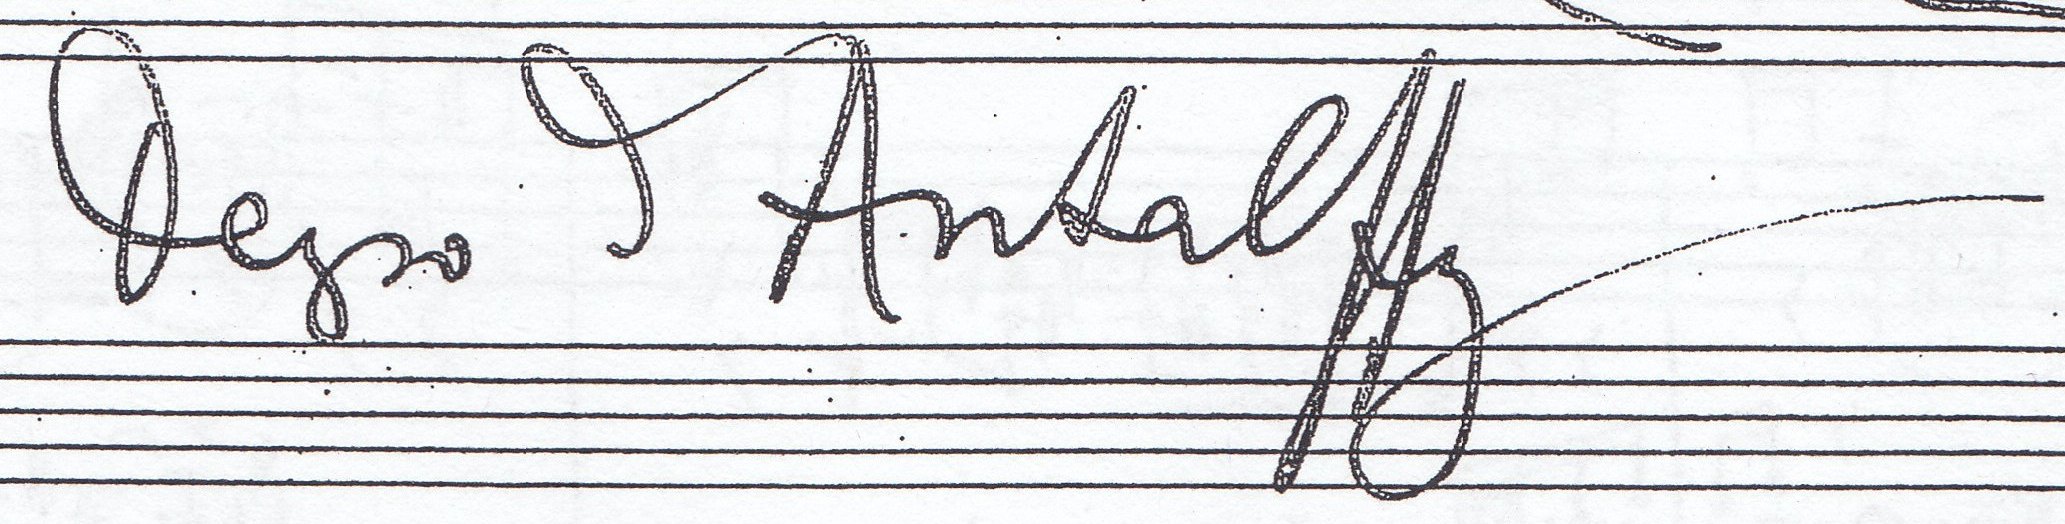 Dezso d'Antalffy